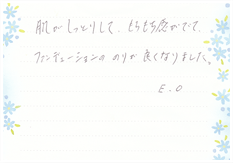 肌がしっとりして、もちもち感がでて、
ファンデーションの のりが 良くなりました。
E.O